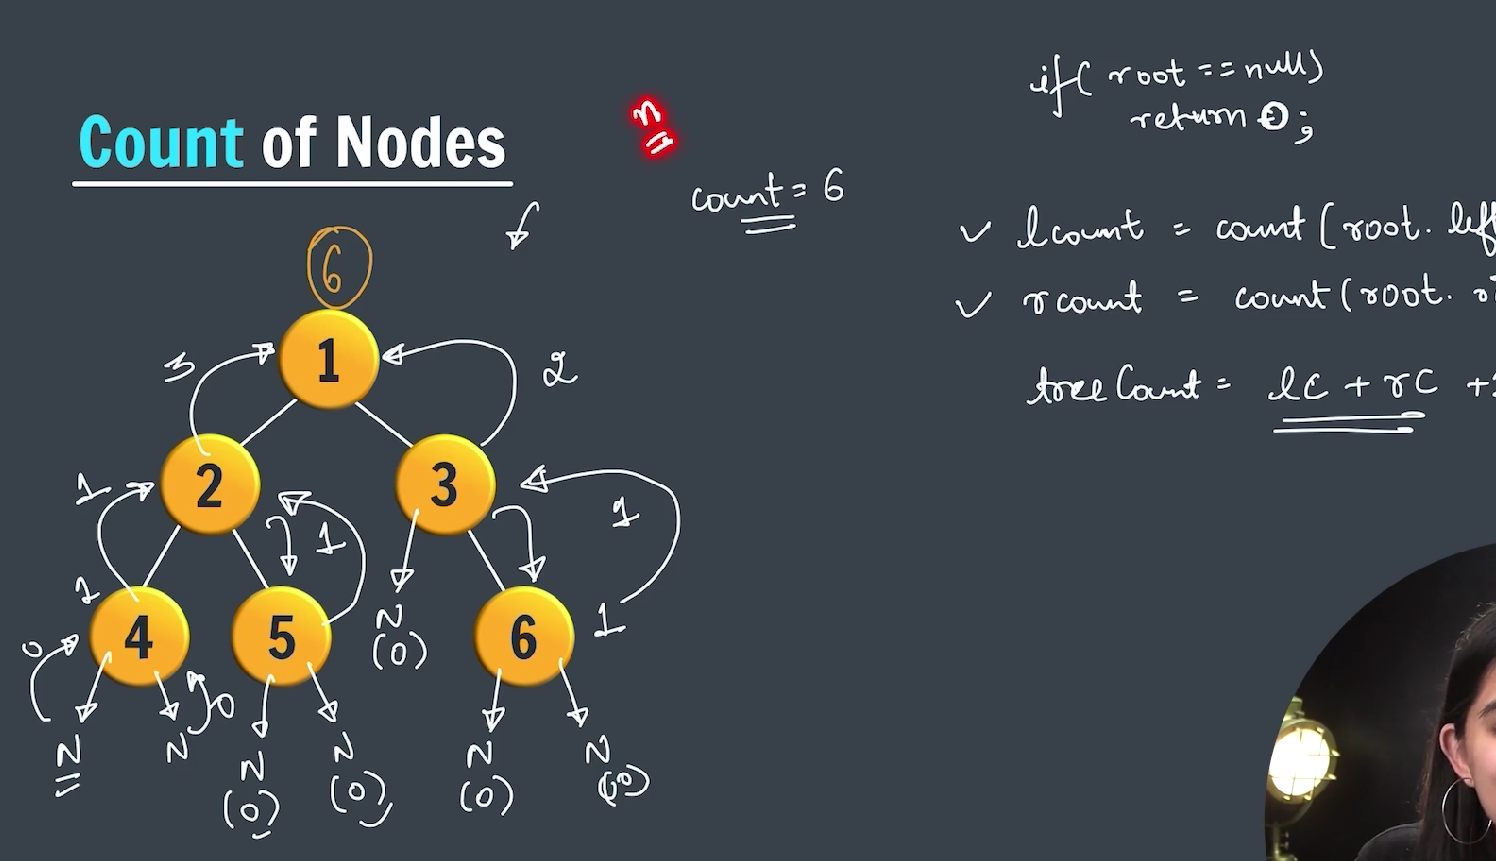 Count of Nodes
n
count = 6
if( root == null)
return 0;
lcount = count (root. left
rcount = count (root.
tree Count = lC + rC +1
6
1
3
2
2
3
1
1
1
4
5
6
1
1
0
0
N
N
N
(0)
N
(0)
N
(0)
N
(0)
N
(0)